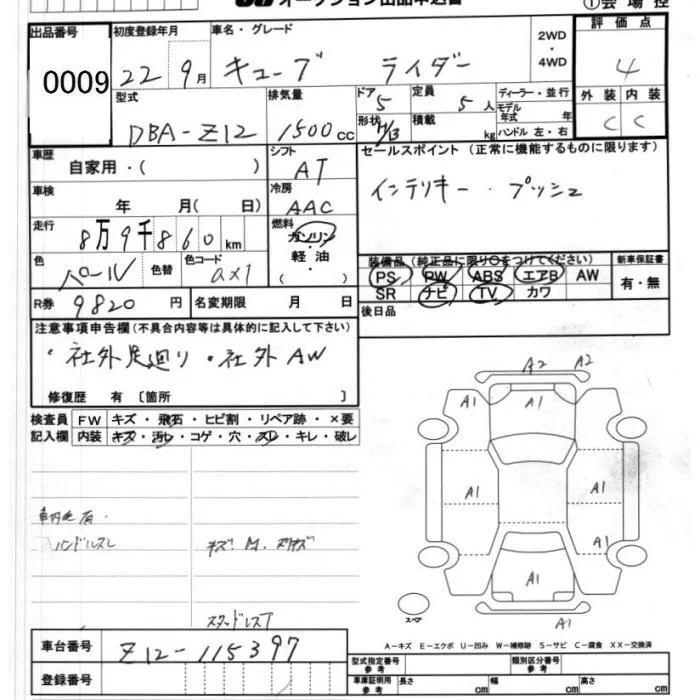 オークション出品申込書 ①会場控
出品番号 初度登録年月 車名・グレード 2WD・4WD 評価点
0009 22 9月 キューブ ライダー 4
型式 排気量 ドア 5 定員 5人 ディーラー・並行 外装 内装
DBA-Z12 1500cc 形状 積載 kg モデル年式 年 ハンドル 左・右 C C
車歴 自家用・( ) シフト AT セールスポイント (正常に機能するものに限ります)
車検 年 月( 日) 冷房 AAC インテリキー・プッシュ
走行 8万9千860km 燃料 ガソリン・軽油・( )
色 パール 色替 色コード ax1 装備品 (純正品に限り○をつけてください) 新車保証書
PS PW ABS エアB AW 有・無
SR ナビ TV カワ
R券 9820円 名変期限 月 日 後日品
注意事項申告欄(不具合内容等は具体的に記入して下さい)
・社外足廻り・社外AW
修復歴 有 〔箇所 〕
検査員 FW キズ・飛石・ヒビ割・リペア跡・×要
記入欄 内装 キズ・汚レ・コゲ・穴・スレ・キレ・破レ
A2 A2
A1 A1
A1 A1
A1
A1
A1
車内 有・
ハンドルスレ
スタッドレスT
スペア
A-キズ E-エクボ U-凹み W-補修跡 S-サビ C-腐食 XX-交換済
車台番号 Z12-115397
型式指定番号 参考 類別区分番号 参考
登録番号 車庫証明用 参考 長さ cm 幅 cm 高さ cm